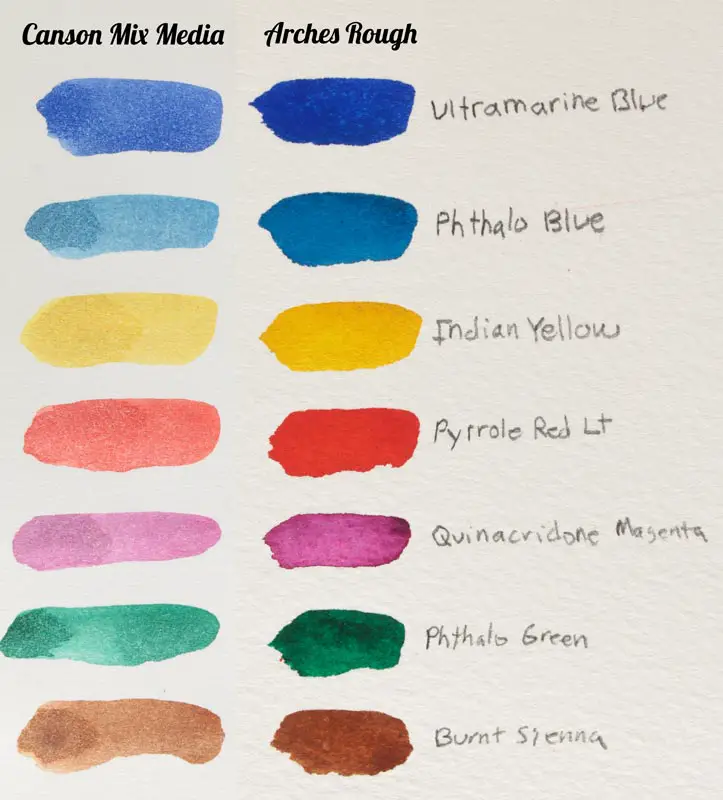 Canson Mix Media Arches Rough
Ultramarine Blue
Phthalo Blue
Indian Yellow
Pyrrole Red Lt
Quinacridone Magenta
Phthalo Green
Burnt Sienna